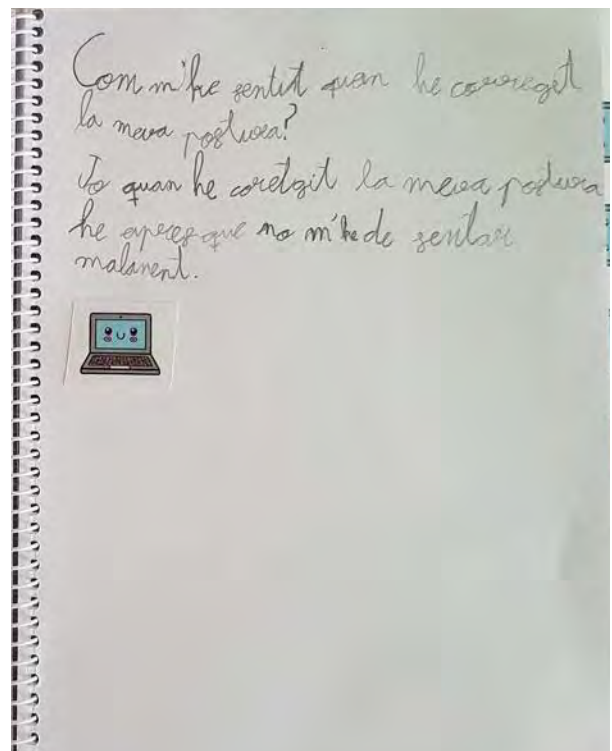 Com m'he sentit quan he correget
la meva postura?
Jo quan he coretgit la meva postura
he apres que no m'he de sentar
malament.